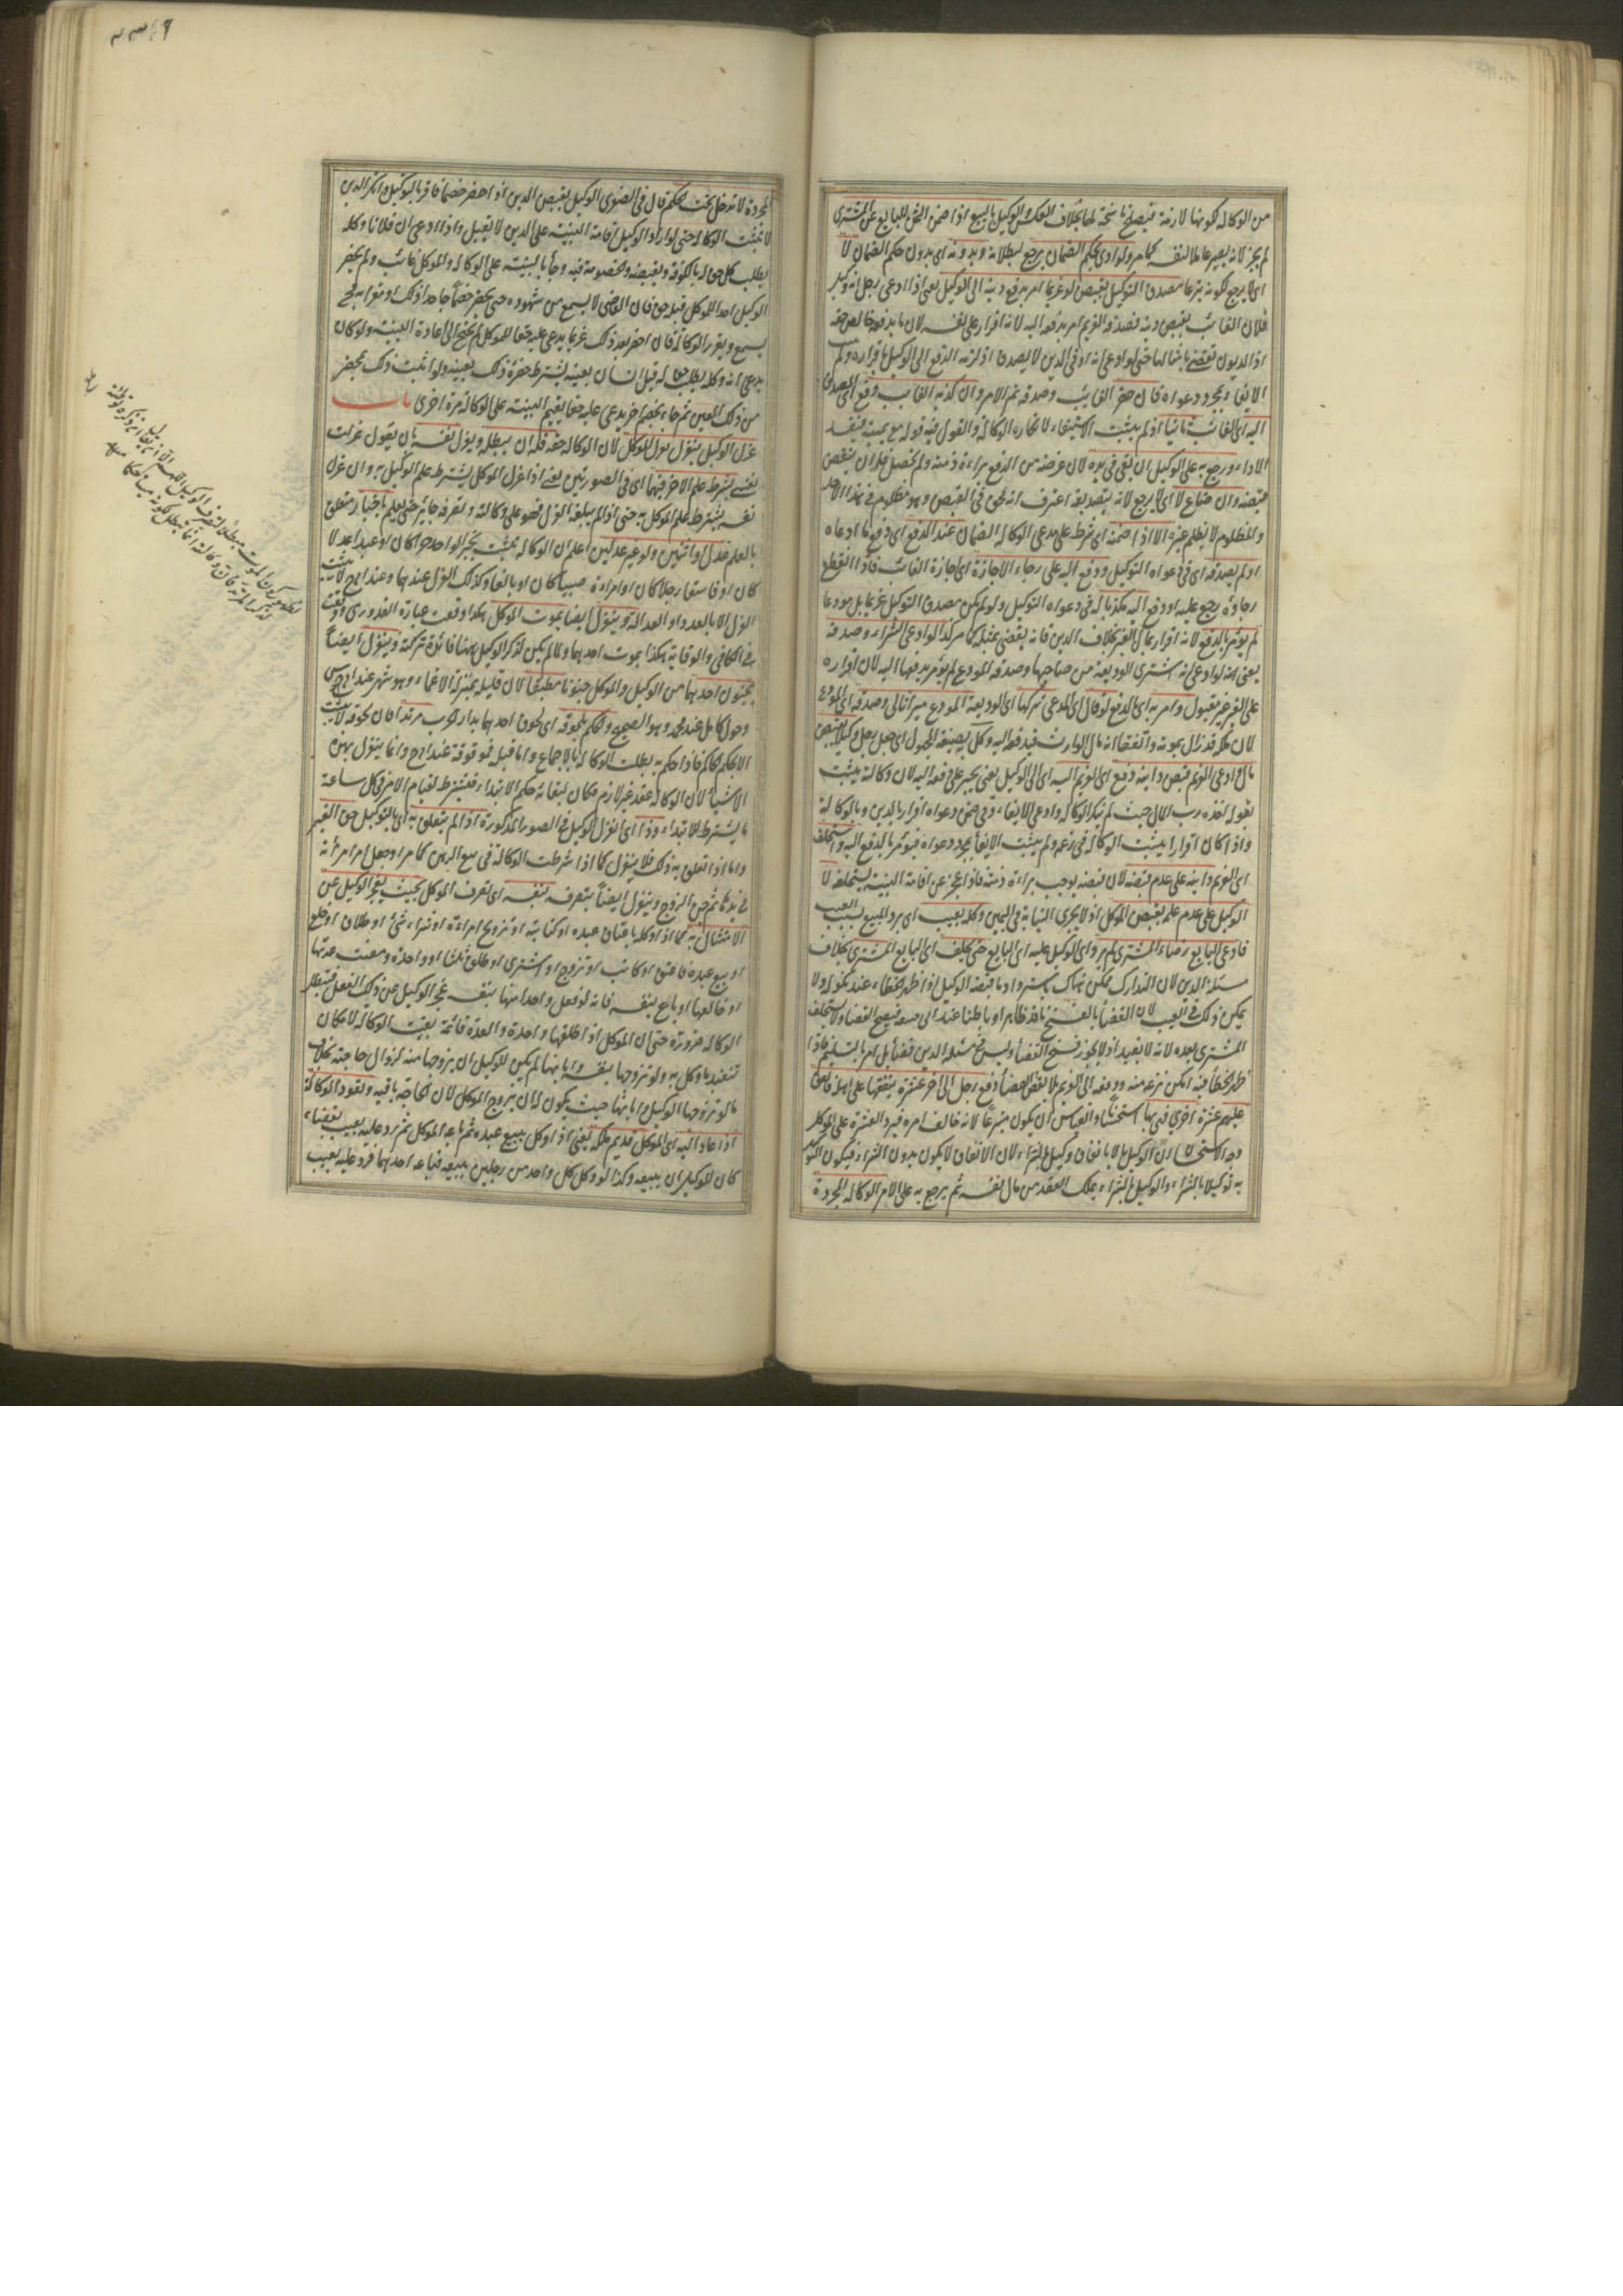 من الوكالة لكونها لازمة فتصلح ناسخة لها بخلاف العكس الوكيل بالبيع اذا ضمن الثمن للبايع عن المشترى
لم يجز لانه يصير عاملا لنفسه كما مر ولو ادى بحكم الضمان يرجع لبطلانه وبدونه اى بدون حكم الضمان لا
اى لا يرجع لكونه متبرعا مصدق التوكيل بقبض لو غريما امر بدفع دينه الى الوكيل يعنى اذا ادعى رجل انه وكيل
فلان الغائب بقبض دينه فصدقه الغريم امر بدفعه اليه لانه اقرار على نفسه لان ما يدفعه خالص حقه
اذ الديون تقضى بامثالها حتى لو ادعى انه اوفى الدين لا يصدق اذ لزمه الدفع الى الوكيل باقراره ولم يثبت
الايفاء بمجرد دعواه فان حضر الغائب وصدقه تم الامر وان كذبه الغائب دفع المصدق
اليه اى الغائب ثانيا اذ لم يثبت الاستيفاء لانكاره الوكالة والقول فيه قوله مع يمينه فيفسد
الاداء ورجع به على الوكيل ان بقى فى يده لان غرضه من الدفع براءة ذمته ولم يحصل فله ان ينقض
قبضه وان ضاع لا اى لا يرجع لانه بتصديقه اعترف انه محق فى القبض وهو مظلوم فى هذا الاخذ
والمظلوم لا يظلم غيره الا اذا ضمنه اى شرط على مدعى الوكالة الضمان عند الدفع اى دفع ما ادعاه
او لم يصدقه اى فى دعواه التوكيل ودفع اليه على رجاء الاجازة اى اجازة الغائب فاذا انقطع
رجاؤه رجع عليه او دفع اليه مكذبا له فى دعواه التوكيل ولو لم يكن مصدق التوكيل غريما بل مودعا
لم يؤمر بالدفع لانه اقرار بمال الغير بخلاف الدين فانه يقضى بمثله كما مر كذا لو ادعى الشراء وصدقه
يعنى انه لو ادعى انه اشترى الوديعة من صاحبها وصدقه المودع لم يؤمر بدفعها اليه لان اقراره
على الغير غير مقبول وامر به اى الدفع لو قال اى المدعى تركها اى الوديعة المودع ميراثا لى وصدقه اى المودع
لان ملكه قد زال بموته واتفقا انه مال الوارث فيدفعه اليه وكل بصيغة المجهول اى جعل رجل وكيلا بقبض
مال ادعى الغريم قبض دائنه دفع اى الغريم اليه اى الى الوكيل يعنى يجبر على دفعه اليه لان وكالته يثبت
بقوله اخذه رب المال حيث لم ينكر الوكالة وادعى الايفاء وفى ضمن دعواه اقرار بالدين وبالوكالة
واذا كان اقرارا يثبت الوكالة فى زعمه ولم يثبت الايفاء بمجرد دعواه فيؤمر بالدفع اليه واستحلف
اى الغريم دائنه على عدم قبضه لان قبضه يوجب براءة ذمته فاذا عجز عن اقامة البينة يستحلفه لا
الوكيل على عدم علم بقبض الموكل اذ لا يجرى النيابة فى اليمين وكله بعيب اى برد المبيع بسبب العيب
فادعى البايع رضاء المشترى لم يرد اى الوكيل عليه اى البايع حتى يحلف اى البايع المشترى بخلاف
مسئلة الدين لان التدارك ممكن هناك باسترداد ما قبضه الوكيل اذا ظهر الخطاء عند نكوله ولا
يمكن ذلك فى العيب لان القضاء بالفسخ نافذ ظاهرا وباطنا عند ابى حنيفة فيصح القضاء ولا يستحلف
المشترى بعده لانه لا يفيد اذ لا يجوز فسخ القضاء وليس فى مسئلة الدين قضاء بل امر بالتسليم فاذا
ظهر الخطأ فيه امكن نزعه منه ودفعه الى الغريم بلا نقض القضاء دفع رجل الى اخر عشرة ينفقها على اهله فانفق
عليهم عشرة اخرى فهى بها استحسانا والقياس ان يكون متبرعا لانه خالف امره فيرد العشرة على الموكل
وجه الاستحسان ان الوكيل بالانفاق وكيل بالشراء لان الانفاق لا يكون بدون الشراء فيكون التوكيل
به توكيلا بالشراء والوكيل بالشراء يملك العقد من مال نفسه ثم يرجع به على الامر الوكالة المجردة
المجردة لا تدخل تحت الحكم قال فى الصغرى الوكيل بقبض الدين اذا احضر خصما فاقر بالتوكيل وانكر الدين
لا تثبت الوكالة حتى لو اراد الوكيل اقامة البينة على الدين لا يقبل واذا ادعى ان فلانا وكله
بطلب كل حق له بالكوفة وبقبضه والخصومة فيه وجاء بالبينة على الوكالة والموكل غائب ولم يحضر
الوكيل احدا للموكل قبله حق فان القاضى لا يسمع من شهوده حتى يحضر خصما جاحدا ذلك او مقرا به فح
يسمع ويقرر الوكالة فان احضر بعد ذلك غريما يدعى عليه حقا للموكل لم يحتج الى اعادة البينة ولو كان
يدعى انه وكله بطلب حق له قبل انسان بعينه يشترط حضرة ذلك بعينه ولو اثبت ذلك بمحضر
من ذلك المعين ثم جاء بخصم اخر يدعى عليه حقا يقيم البينة على الوكالة مرة اخرى باب
عزل الوكيل ينعزل بعزل الموكل لان الوكالة حقه فله ان يبطله وبعزل نفسه بان يقول عزلت
نفسى بشرط علم الاخر فيهما اى فى الصورتين يعنى اذا عزل الموكل يشترط علم الوكيل به وان عزل
نفسه يشترط علم الموكل به حتى اذا لم يبلغه العزل فهو على وكالته وتصرفه جائز حتى يعلم باخبار متعلق
بالعلم عدل او اثنين ولو غير عدلين اعلم ان الوكالة تثبت بخبر الواحد حرا كان او عبدا عدلا
كان او فاسقا رجلا كان او امراة صبيا كان او بالغا وكذلك العزل عندهما وعند ابى ح لا يثبت
العزل الا بالعدد او العدالة وينعزل ايضا بموت الموكل هكذا وقعت عبارة القدورى ووقعت
فى الكافى والوقاية هكذا بموت احدهما ولما لم يكن لذكر الوكيل ههنا فائدة تركته وينعزل ايضا
بجنون احدهما من الوكيل والموكل جنونا مطبقا لان قليله بمنزلة الاغماء وهو شهر عند ابى يوسف
وحول كامل عند محمد وهو الصحيح والحكم بلحوقه اى لحوق احدهما بدار الحرب مرتدا فان لحوقه لا يثبت
الا بحكم الحاكم فاذا حكم به بطلت الوكالة بالاجماع واما قبله فموقوفة عند ابى ح وانما ينعزل بهذه
الاشياء لان الوكالة عقد غير لازم فكان لبقائه حكم الابتداء فيشترط لقيام الامر فى كل ساعة
ما يشترط للابتداء وذا اى انعزال الوكيل فى الصور المذكورة اذا لم يتعلق به اى بالتوكيل حق الغير
واما اذا تعلق به ذلك فلا ينعزل كما اذا شرطت الوكالة فى بيع الرهن كما مر او جعل امر امرأته
فى يدها ثم جن الزوج وينعزل ايضا بتصرفه بنفسه اى تصرف الموكل بحيث يعجز الوكيل عن
الامتثال به كما اذا وكله باعتاق عبده او كتابته او تزويج امراة او شراء شئ او طلاق او خلع
او بيع عبده فاعتق او كاتب او تزوج او اشترى او طلق ثلثا او واحدة ومضت عدتها
او خالعها او باع بنفسه فانه لو فعل واحدا منها بنفسه عجز الوكيل عن ذلك الفعل فتبطل
الوكالة ضرورة حتى ان الموكل اذا طلقها واحدة والعدة قائمة بقيت الوكالة لامكان
تنفيذ ما وكل به ولو تزوجها بنفسه وابانها لم يكن للوكيل ان يزوجها منه لزوال حاجته بخلاف
ما لو تزوجها الوكيل وابانها حيث يكون له ان يزوج الموكل لان الحاجة باقية وتعود الوكالة
اذا عاد اليه اى الموكل قديم ملكه يعنى اذا وكل ببيع عبده ثم باعه الموكل ثم رد عليه بعيب بقضاء
كان للوكيل ان يبيعه وكذا لو وكل كل واحد من رجلين ببيعه فباعه احدهما فرد عليه بعيب